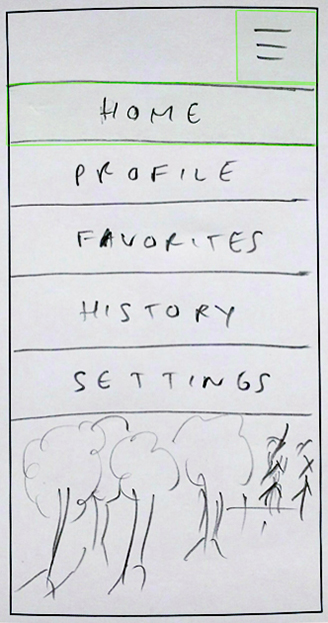 HOME
PROFILE
FAVORITES
HISTORY
SETTINGS